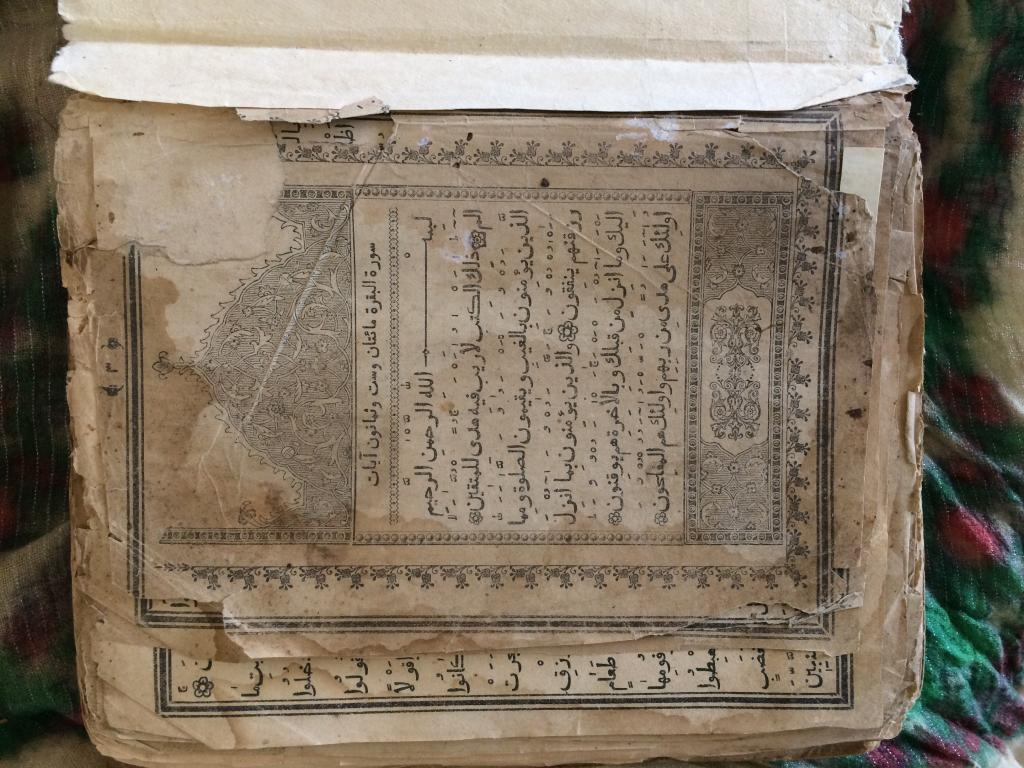 ٣
سورة البقرة مائتان وست وثمانون آيات
بِسْمِ اللّٰهِ الرَّحْمٰنِ الرَّحِيمِ
الٓمٓ ۝ ذٰلِكَ الْكِتٰبُ لَا رَيْبَ فِيهِ هُدًى لِلْمُتَّقِينَ
۝ الَّذِينَ يُؤْمِنُونَ بِالْغَيْبِ وَيُقِيمُونَ الصَّلٰوةَ وَمِمَّا
رَزَقْنٰهُمْ يُنْفِقُونَ ۝ وَالَّذِينَ يُؤْمِنُونَ بِمَآ اُنْزِلَ
اِلَيْكَ وَمَآ اُنْزِلَ مِنْ قَبْلِكَ وَبِالْاٰخِرَةِ هُمْ يُوقِنُونَ
۝ اُولٰٓئِكَ عَلٰى هُدًى مِنْ رَبِّهِمْ وَاُولٰٓئِكَ هُمُ الْمُفْلِحُونَ ۝
قَوْلًا
كَانُوا
طَعَامٍ